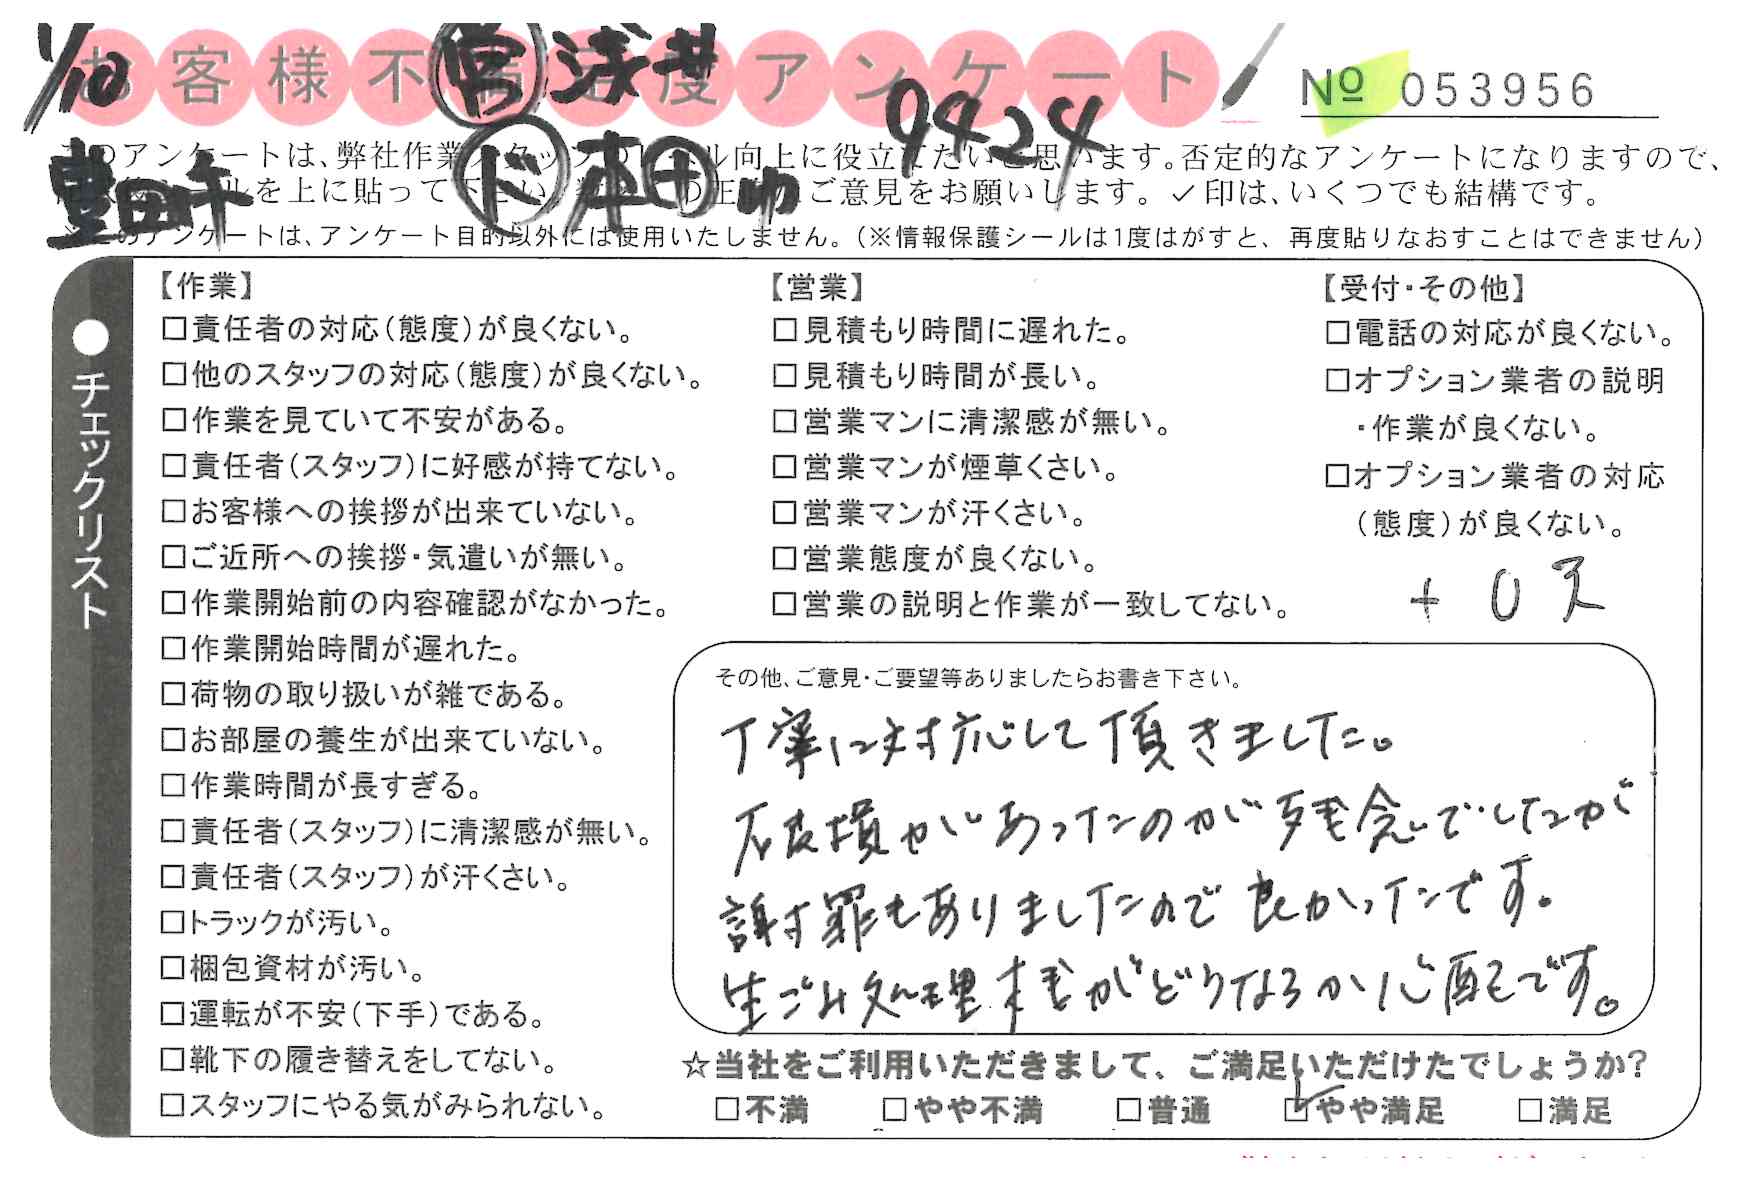 1/10
お客様不満足度アンケート
営 浅井
№ 053956
9424
豊田午
ド 本田
このアンケートは、弊社作業スタッフのレベル向上に役立てたいと思います。否定的なアンケートになりますので、
ルを上に貼って下さい。ご意見をお願いします。✓印は、いくつでも結構です。
※このアンケートは、アンケート目的以外には使用いたしません。（※情報保護シールは1度はがすと、再度貼りなおすことはできません）
●チェックリスト
【作業】
□責任者の対応（態度）が良くない。
□他のスタッフの対応（態度）が良くない。
□作業を見ていて不安がある。
□責任者（スタッフ）に好感が持てない。
□お客様への挨拶が出来ていない。
□ご近所への挨拶・気遣いが無い。
□作業開始前の内容確認がなかった。
□作業開始時間が遅れた。
□荷物の取り扱いが雑である。
□お部屋の養生が出来ていない。
□作業時間が長すぎる。
□責任者（スタッフ）に清潔感が無い。
□責任者（スタッフ）が汗くさい。
□トラックが汚い。
□梱包資材が汚い。
□運転が不安（下手）である。
□靴下の履き替えをしてない。
□スタッフにやる気がみられない。
【営業】
□見積もり時間に遅れた。
□見積もり時間が長い。
□営業マンに清潔感が無い。
□営業マンが煙草くさい。
□営業マンが汗くさい。
□営業態度が良くない。
□営業の説明と作業が一致してない。
【受付・その他】
□電話の対応が良くない。
□オプション業者の説明
・作業が良くない。
□オプション業者の対応
（態度）が良くない。
+ 0点
その他、ご意見・ご要望等ありましたらお書き下さい。
丁寧に対応して頂きました。
破損があったのが残念でしたが
謝罪もありましたので良かったです。
生ごみ処理機がどうなるか心配です。
☆当社をご利用いただきまして、ご満足いただけたでしょうか？
□不満 □やや不満 □普通 ☑やや満足 □満足